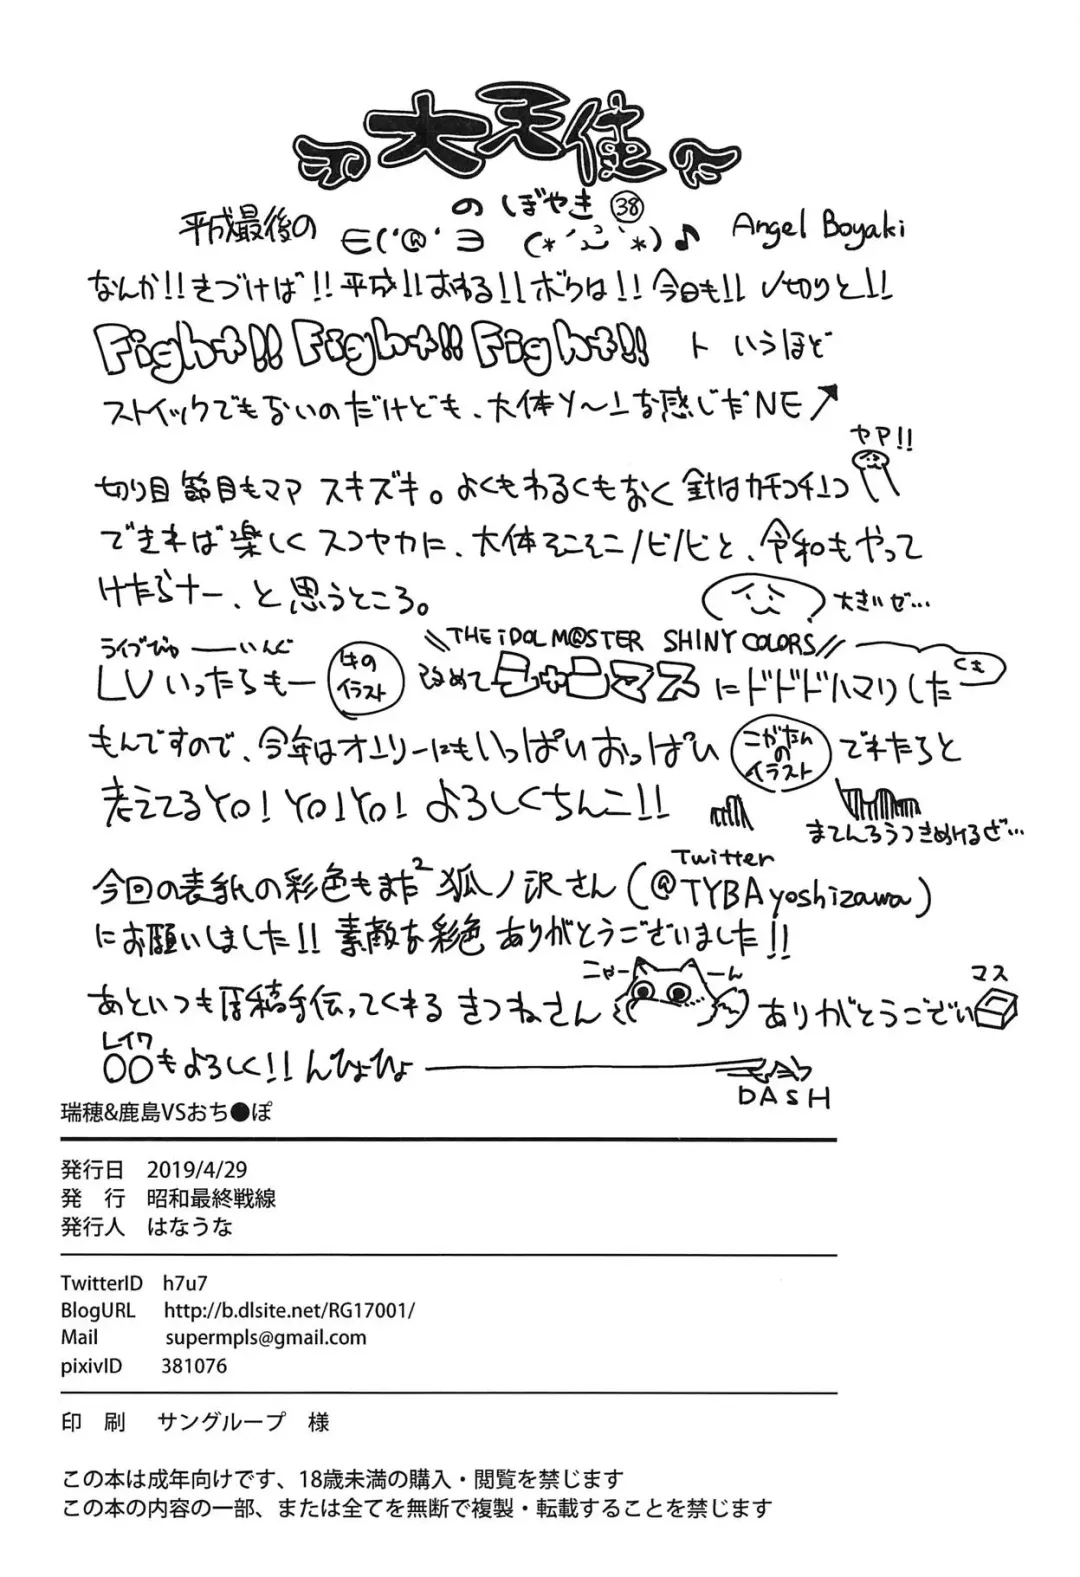 大天使
のぼやき㊳
平成最後の ∈('@'∋ (*´ω`*)♪ Angel Boyaki
なんか!!きづけば!!平成!!おわる!!ボクは!!今日も!!〆切りと!!
Fight!! Fight!! Fight!! ト いうほど
ストイックでもないのだけども、大体Y〜ユな感じだNE↗
ヤア!!
切り目節目もマア スキズキ。よくもわるくもなく 針はカチコチユコ
できれば楽しくスコヤカに、大体そこそこノビノビと、令和もやって
けたらナー、と思うところ。
大きいぜ…
\\THE iDOLM@STER SHINY COLORS//
ライブびゅーーいんぐ
LVいったらもー 牛のイラスト 改めてシャニマスにドドドハマりした
くも
もんですので、今年はオンリーにもいっぱいおっぱい こがたんのイラスト でれたらと
考えてるYO!YO!YO!よろしくちんこ!!
まてんろうつきぬけるぜ…
Twitter
今回の表紙の彩色もまた² 狐ノ沢さん(@TYBAyoshizawa)
にお願いしました!! 素敵な彩色ありがとうございました!!
こゃーーん
マス
あといつも原稿手伝ってくれる きつねさん ありがとうござい
レイワ
〇〇もよろしく!!んひょひょ
DASH
瑞穂&鹿島VSおち●ぽ
発行日 2019/4/29
発 行 昭和最終戦線
発行人 はなうな
TwitterID h7u7
BlogURL http://b.dlsite.net/RG17001/
Mail supermpls@gmail.com
pixivID 381076
印 刷 サングループ 様
この本は成年向けです、18歳未満の購入・閲覧を禁じます
この本の内容の一部、または全てを無断で複製・転載することを禁じます